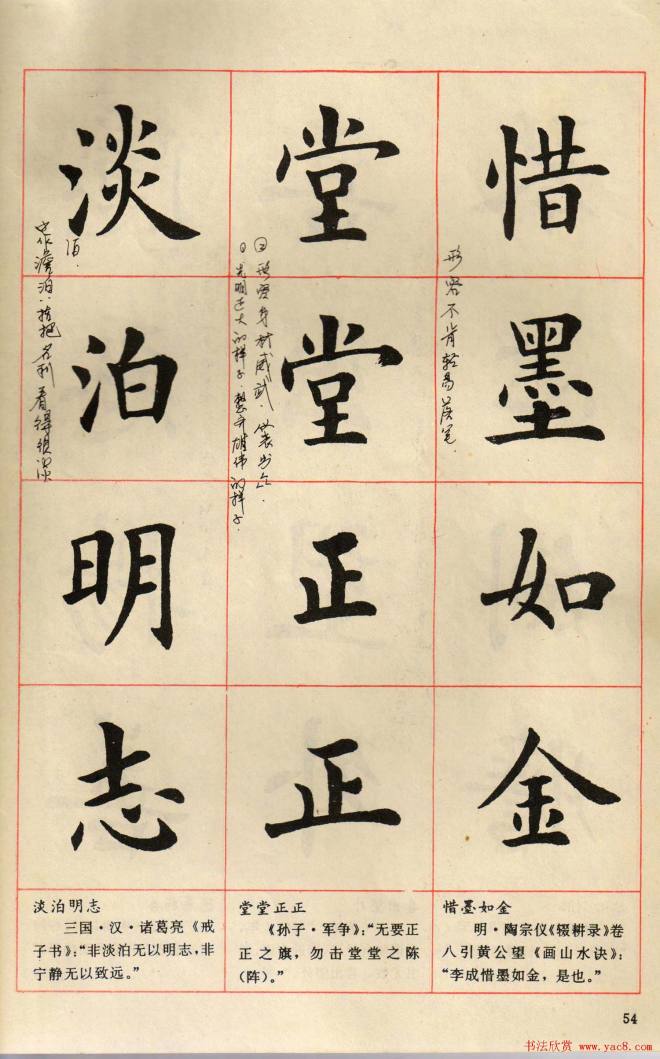 惜墨如金
堂堂正正
淡泊明志
形容不肯轻易落笔.
② 形容身材威武，仪表出众.
光明正大的样子.
雄伟的样子.
也作澹泊
指把名利看得很淡
淡泊明志
三国·汉·诸葛亮《戒
子书》：“非淡泊无以明志，非
宁静无以致远。”
堂堂正正
《孙子·军争》：“无要正
正之旗，勿击堂堂之陈
（阵）。”
惜墨如金
明·陶宗仪《辍耕录》卷
八引黄公望《画山水诀》：
“李成惜墨如金，是也。”
54
书法欣赏 www.yac8.com